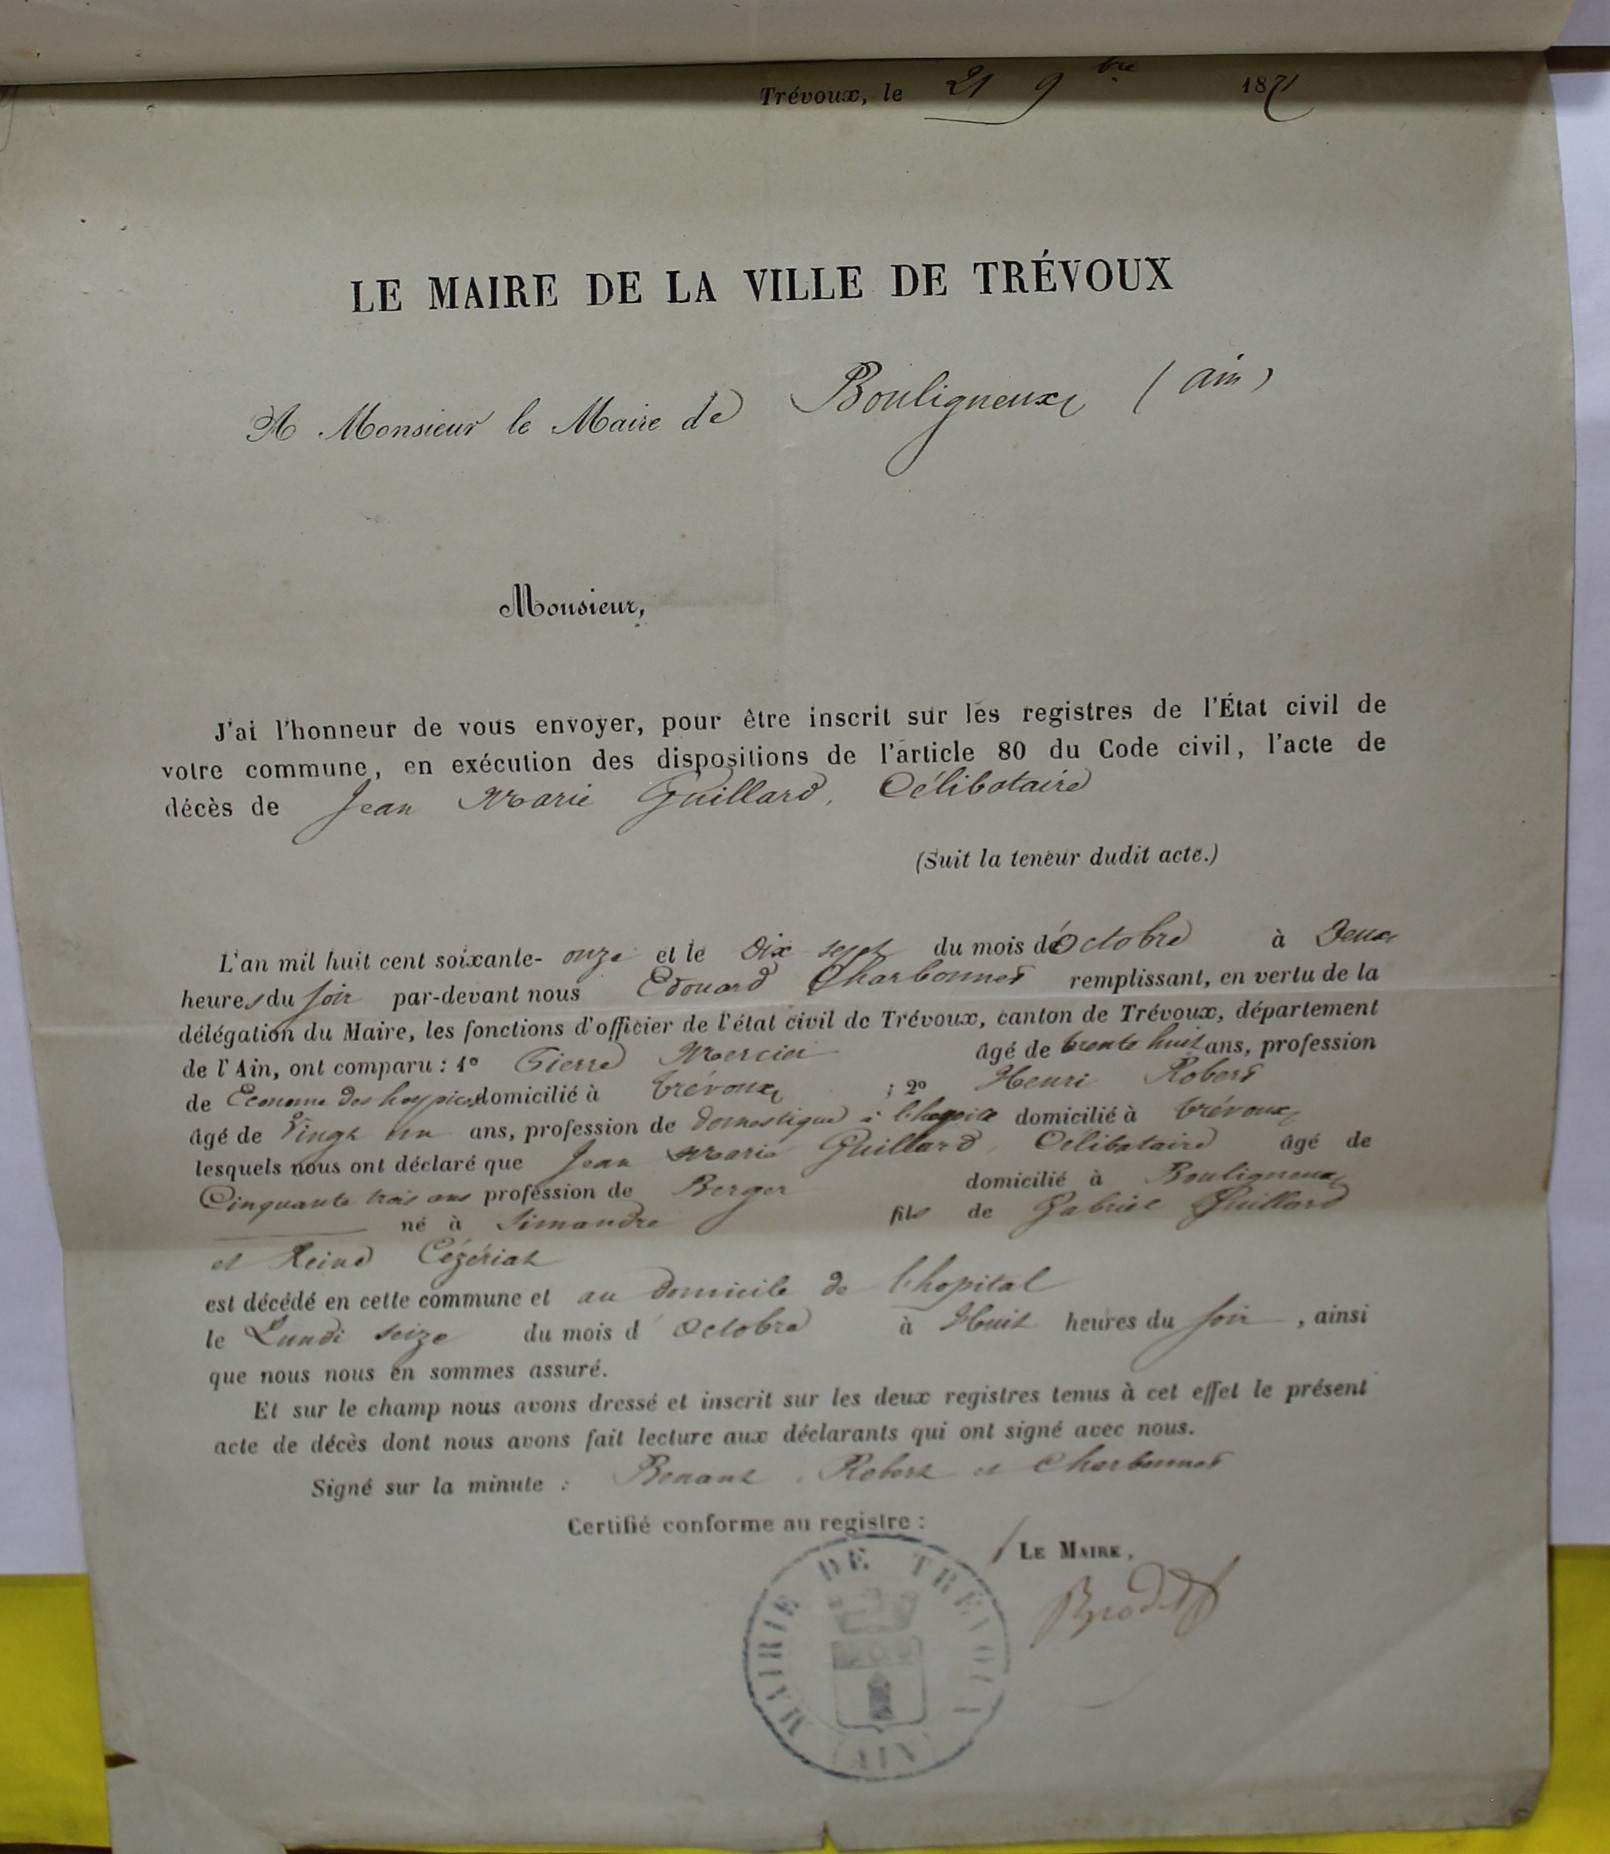 Trévoux, le 21 9bre 1871
LE MAIRE DE LA VILLE DE TRÉVOUX
A Monsieur le Maire de Bouligneux (ain)
Monsieur,
J'ai l'honneur de vous envoyer, pour être inscrit sur les registres de l'État civil de
votre commune, en exécution des dispositions de l'article 80 du Code civil, l'acte de
décès de Jean Marie Guillard, Célibataire
(Suit la teneur dudit acte.)
L'an mil huit cent soixante- onze et le Dix sept du mois de Octobre à Deux
heures du soir par-devant nous Edouard Charbonnet remplissant, en vertu de la
délégation du Maire, les fonctions d'officier de l'état civil de Trévoux, canton de Trévoux, département
de l'Ain, ont comparu : 1º Pierre Mercier âgé de trente huit ans, profession
de Econome des hospices domicilié à Trévoux ; 2º Henri Robert
âgé de Vingt un ans, profession de domestique à l'hospice domicilié à Trévoux
lesquels nous ont déclaré que Jean Marie Guillard, Célibataire âgé de
Cinquante trois ans profession de Berger domicilié à Bouligneux
né à Simandre fils de Gabriel Guillard
et Reine Cézériat
est décédé en cette commune et au domicile de l'hopital
le Lundi seize du mois d'Octobre à Huit heures du soir, ainsi
que nous nous en sommes assuré.
Et sur le champ nous avons dressé et inscrit sur les deux registres tenus à cet effet le présent
acte de décès dont nous avons fait lecture aux déclarants qui ont signé avec nous.
Signé sur la minute : Robert et Charbonnet
Certifié conforme au registre :
LE MAIRE,
MAIRIE DE TRÉVOUX
(AIN)